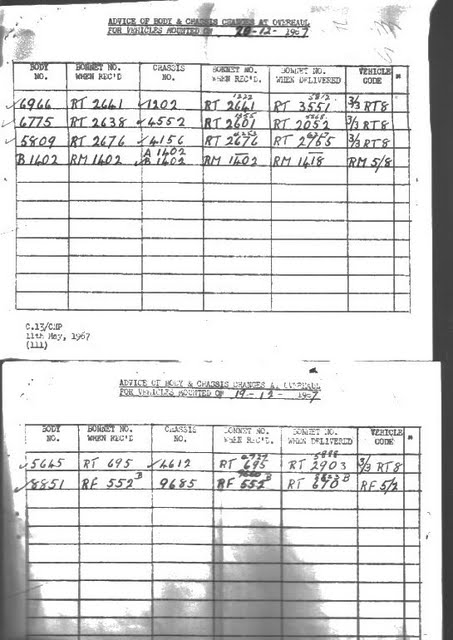 ADVICE OF BODY & CHASSIS CHANGES AT OVERHAUL
FOR VEHICLES MOUNTED ON 20-12- 1967
BODY NO. BONNET NO. WHEN REC'D CHASSIS NO. BONNET NO. WHEN REC'D. BONNET NO. WHEN DELIVERED VEHICLE CODE *
✓6966 RT 2641 ✓1202 RT 2641 RT 3551 3/3 RT8
✓6775 RT 2638 ✓4552 RT 2601 RT 2052 3/3 RT8
✓5809 RT 2676 ✓4156 RT 2676 RT 2765 3/3 RT8
A 1402
B1402 RM 1402 B 1402 RM 1402 RM 1418 RM 5/8
C.13/CHP
11th May, 1967
(111)
ADVICE OF BODY & CHASSIS CHANGES AT OVERHAUL
FOR VEHICLES MOUNTED ON 19-12- 1967
BODY NO. BONNET NO. WHEN REC'D CHASSIS NO. BONNET NO. WHEN REC'D. BONNET NO. WHEN DELIVERED VEHICLE CODE *
✓5645 RT 695 ✓4612 RT 695 RT 2903 3/3 RT8
✓8851 RF 552 B 9685 RF 552 B RT 670 B RF 5/2